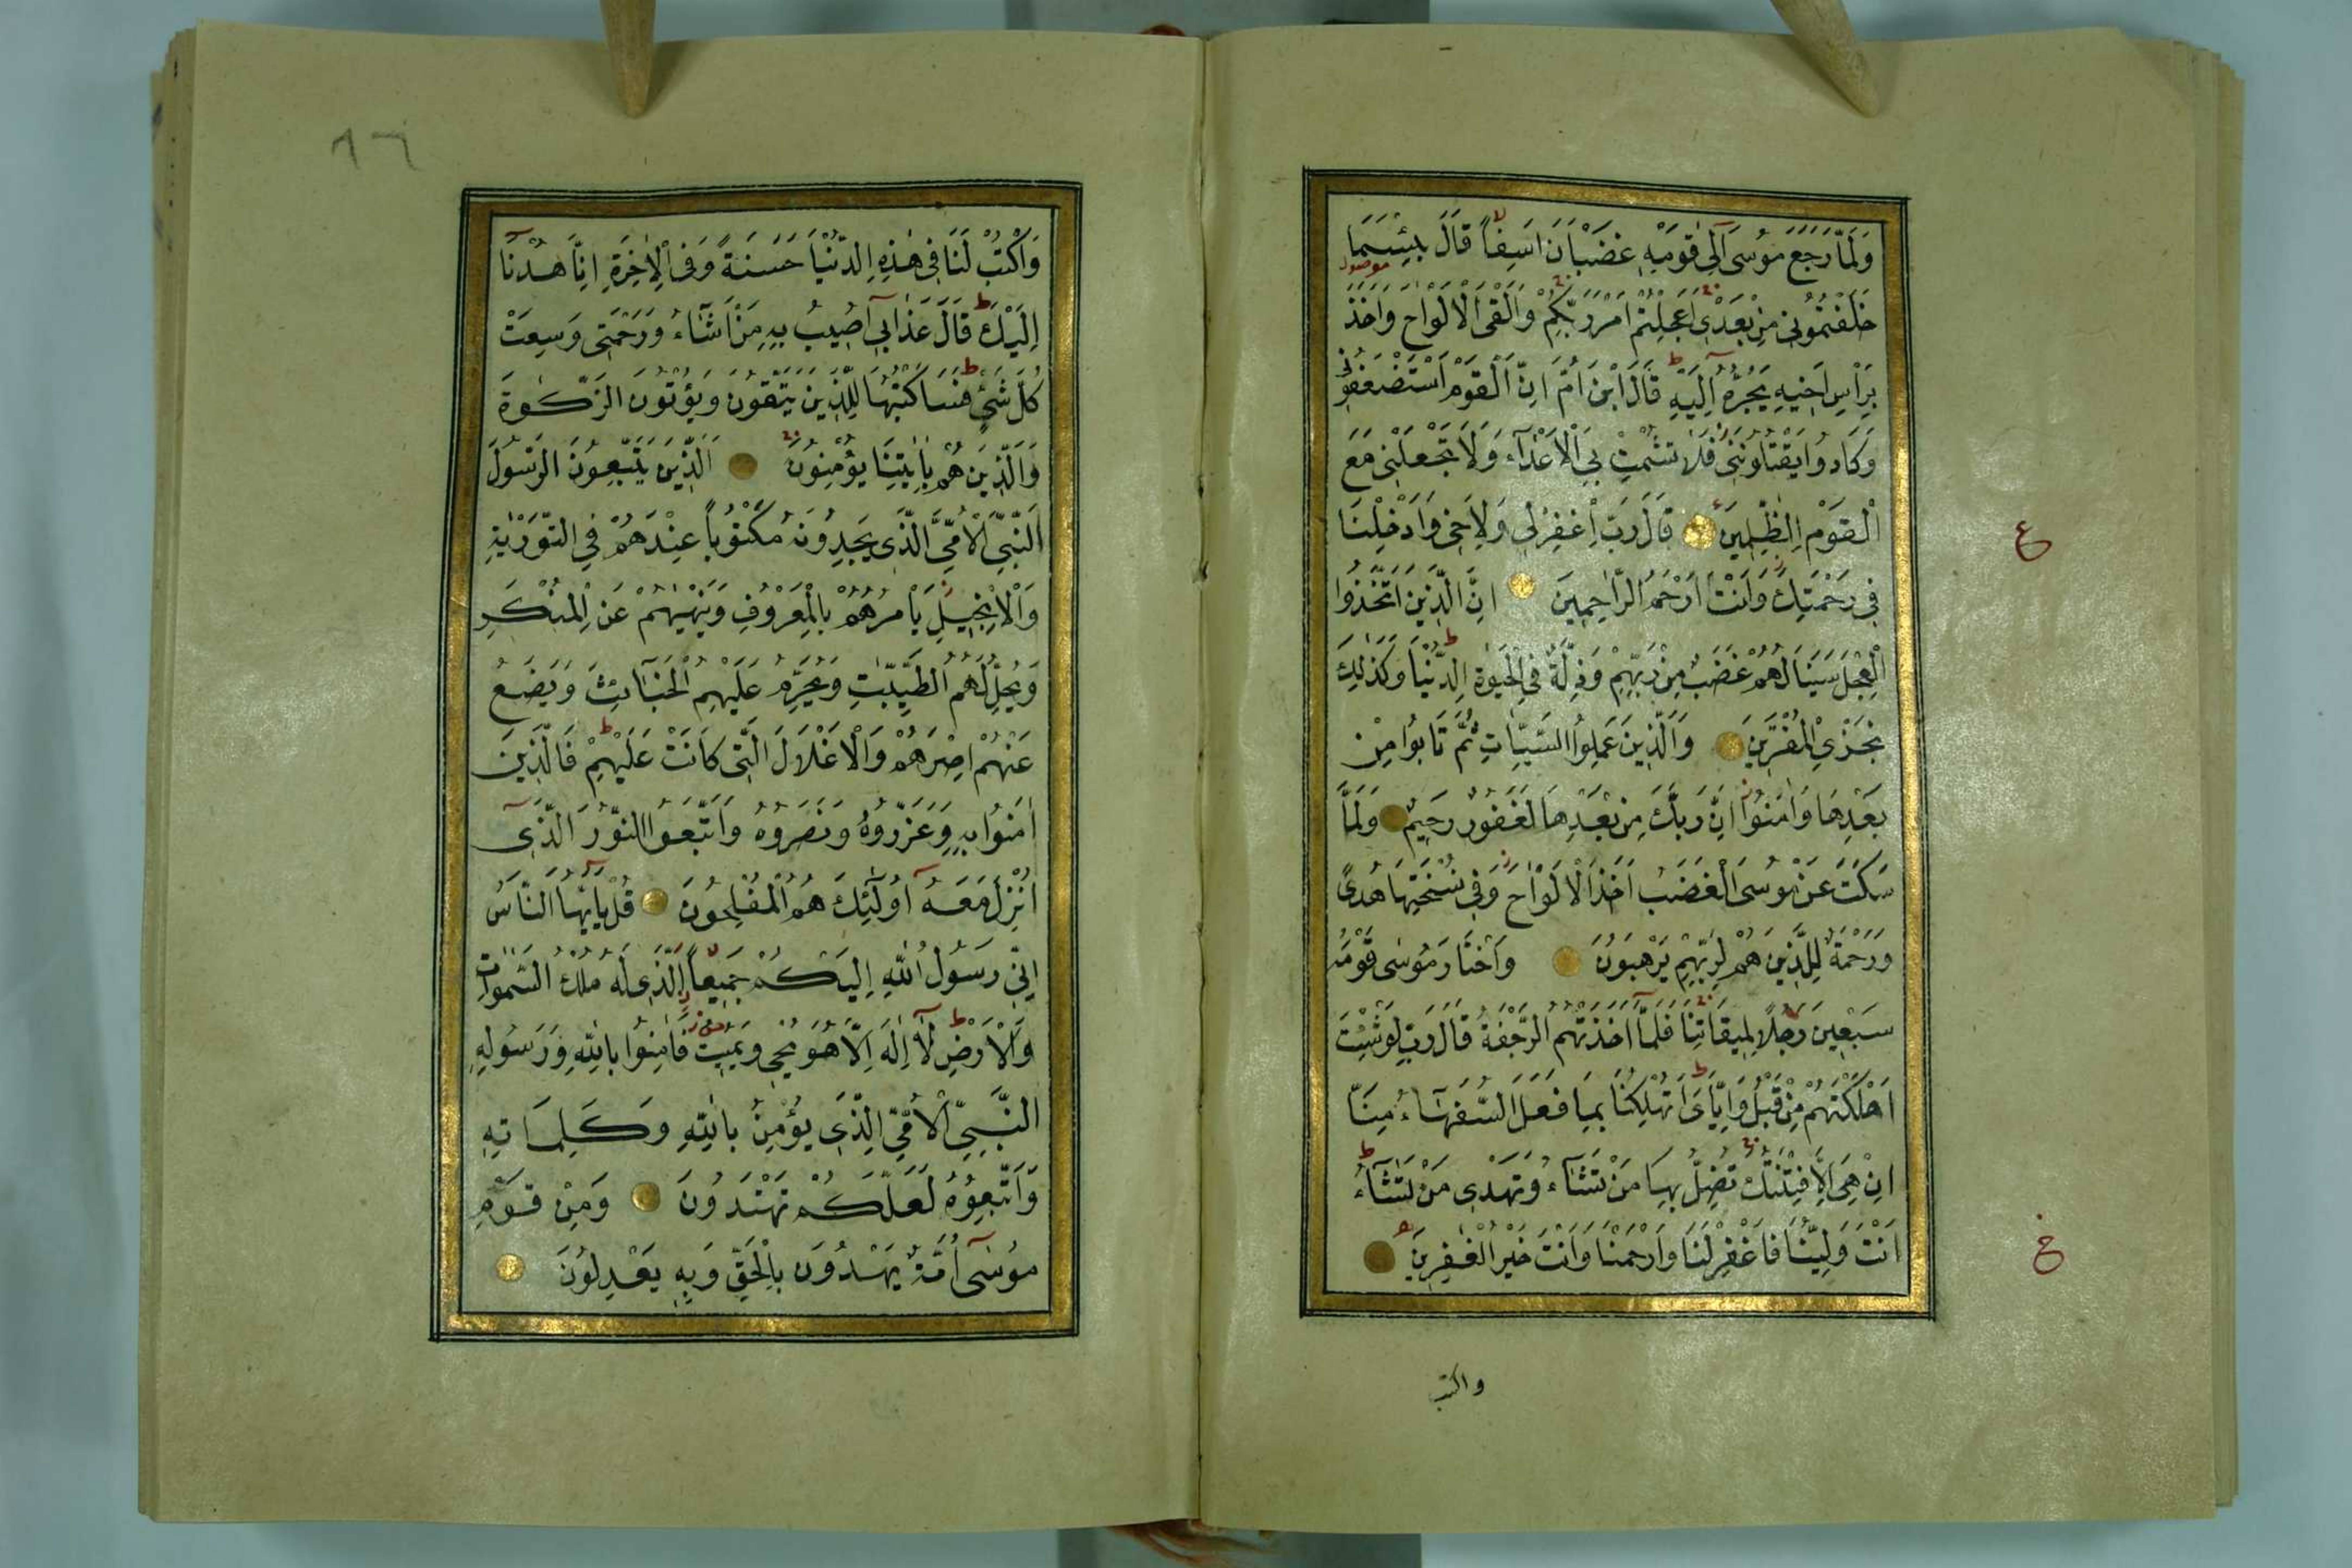 وَلَمَّا رَجَعَ مُوسَى اِلٰى قَوْمِهِ غَضْبَانَ اَسِفًا قَالَ بِئْسَمَا
موصول
خَلَفْتُمُونِى مِنْ بَعْدِى اَعَجِلْتُمْ اَمْرَ رَبِّكُمْ وَاَلْقَى الْاَلْوَاحَ وَاَخَذَ
بِرَاْسِ اَخِيهِ يَجُرُّهُ اِلَيْهِ قَالَ ابْنَ اُمَّ اِنَّ الْقَوْمَ اسْتَضْعَفُونِى
وَكَادُوا يَقْتُلُونَنِى فَلَا تُشْمِتْ بِىَ الْاَعْدَاءَ وَلَا تَجْعَلْنِى مَعَ
الْقَوْمِ الظّٰلِمِينَ قَالَ رَبِّ اغْفِرْ لِى وَلِاَخِى وَاَدْخِلْنَا
ع
فِى رَحْمَتِكَ وَاَنْتَ اَرْحَمُ الرَّاحِمِينَ اِنَّ الَّذِينَ اتَّخَذُوا
الْعِجْلَ سَيَنَالُهُمْ غَضَبٌ مِنْ رَبِّهِمْ وَذِلَّةٌ فِى الْحَيٰوةِ الدُّنْيَا وَكَذٰلِكَ
نَجْزِى الْمُفْتَرِينَ وَالَّذِينَ عَمِلُوا السَّيِّاٰتِ ثُمَّ تَابُوا مِنْ
بَعْدِهَا وَاٰمَنُوا اِنَّ رَبَّكَ مِنْ بَعْدِهَا لَغَفُورٌ رَحِيمٌ وَلَمَّا
سَكَتَ عَنْ مُوسَى الْغَضَبُ اَخَذَ الْاَلْوَاحَ وَفِى نُسْخَتِهَا هُدًى
وَرَحْمَةٌ لِلَّذِينَ هُمْ لِرَبِّهِمْ يَرْهَبُونَ وَاخْتَارَ مُوسٰى قَوْمَهُ
سَبْعِينَ رَجُلًا لِمِيقَاتِنَا فَلَمَّا اَخَذَتْهُمُ الرَّجْفَةُ قَالَ رَبِّ لَوْ شِئْتَ
اَهْلَكْتَهُمْ مِنْ قَبْلُ وَاِيَّاىَ اَتُهْلِكُنَا بِمَا فَعَلَ السُّفَهَاءُ مِنَّا
اِنْ هِىَ اِلَّا فِتْنَتُكَ تُضِلُّ بِهَا مَنْ تَشَاءُ وَتَهْدِى مَنْ تَشَاءُ
اَنْتَ وَلِيُّنَا فَاغْفِرْ لَنَا وَارْحَمْنَا وَاَنْتَ خَيْرُ الْغٰفِرِينَ
واكتب
٨٦
وَاكْتُبْ لَنَا فِى هٰذِهِ الدُّنْيَا حَسَنَةً وَفِى الْاٰخِرَةِ اِنَّا هُدْنَا
اِلَيْكَ قَالَ عَذَابِى اُصِيبُ بِهِ مَنْ اَشَاءُ وَرَحْمَتِى وَسِعَتْ
كُلَّ شَىْءٍ فَسَاَكْتُبُهَا لِلَّذِينَ يَتَّقُونَ وَيُؤْتُونَ الزَّكٰوةَ
وَالَّذِينَ هُمْ بِاٰيٰتِنَا يُؤْمِنُونَ اَلَّذِينَ يَتَّبِعُونَ الرَّسُولَ
النَّبِىَّ الْاُمِّىَّ الَّذِى يَجِدُونَهُ مَكْتُوبًا عِنْدَهُمْ فِى التَّوْرٰيةِ
وَالْاِنْجِيلِ يَاْمُرُهُمْ بِالْمَعْرُوفِ وَيَنْهٰيهُمْ عَنِ الْمُنْكَرِ
وَيُحِلُّ لَهُمُ الطَّيِّبَاتِ وَيُحَرِّمُ عَلَيْهِمُ الْخَبَائِثَ وَيَضَعُ
عَنْهُمْ اِصْرَهُمْ وَالْاَغْلَالَ الَّتِى كَانَتْ عَلَيْهِمْ فَالَّذِينَ
اٰمَنُوا بِهِ وَعَزَّرُوهُ وَنَصَرُوهُ وَاتَّبَعُوا النُّورَ الَّذِى
اُنْزِلَ مَعَهُ اُولٰئِكَ هُمُ الْمُفْلِحُونَ قُلْ يَااَيُّهَا النَّاسُ
اِنِّى رَسُولُ اللّٰهِ اِلَيْكُمْ جَمِيعًا الَّذِى لَهُ مُلْكُ السَّمٰوَاتِ
وَالْاَرْضِ لَا اِلٰهَ اِلَّا هُوَ يُحْيِى وَيُمِيتُ فَاٰمِنُوا بِاللّٰهِ وَرَسُولِهِ
النَّبِىِّ الْاُمِّىِّ الَّذِى يُؤْمِنُ بِاللّٰهِ وَكَلِمَاتِهِ
وَاتَّبِعُوهُ لَعَلَّكُمْ تَهْتَدُونَ وَمِنْ قَوْمِ
مُوسٰى اُمَّةٌ يَهْدُونَ بِالْحَقِّ وَبِهِ يَعْدِلُونَ